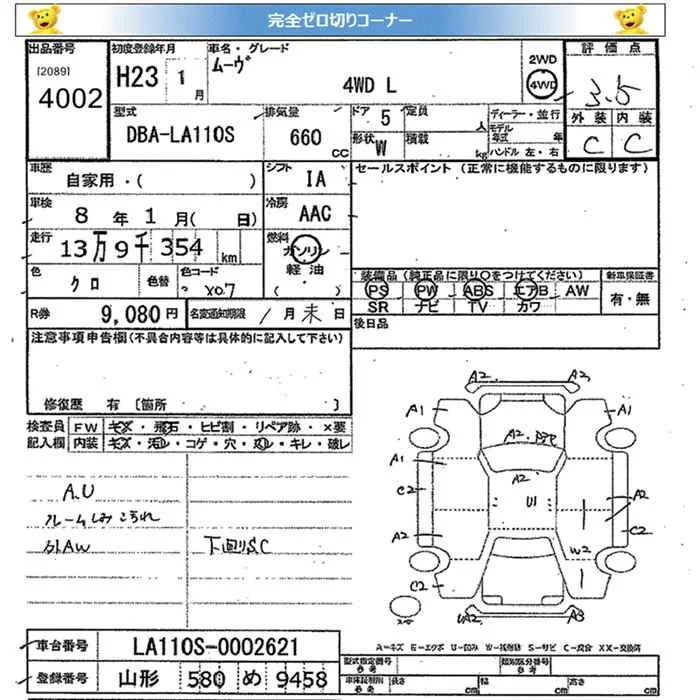 完全ゼロ切りコーナー
出品番号 初度登録年月 車名・グレード 2WD 評価点
[2089] H23 1月 ムーヴ
4002 4WD L 4WD 3.5
型式 排気量 ドア 5 定員 人 ディーラー・並行 外装 内装
DBA-LA110S 660 CC 形状 W 積載 kg モデル年式 年 ハンドル 左・右 C C
車歴 自家用・( ) シフト IA セールスポイント (正常に機能するものに限ります)
車検 8年 1月( 日) 冷房 AAC
走行 13万9千354 km 燃料 ガソリン
色 クロ 色替 色コード X07 軽油 ( )
装備品 (純正品に限り○をつけてください) 新車保証書
PS PW ABS エアB AW 有・無
SR ナビ TV カワ
R券 9,080円 名変通知期限 / 月 末 日 後日品
注意事項申告欄(不具合内容等は具体的に記入して下さい)
修復歴 有 〔箇所 〕
検査員 FW キズ・飛石・ヒビ割・リペア跡・×要
記入欄 内装 キズ・汚レ・コゲ・穴・凹レ・キレ・破レ
A2 A2
A1 A1
A2
A1 A2
C2 U1 A2
A2 W2 C2
C2
A3
A.U
外AW 下回りS.C
A-キズ E-エクボ U-凹み W-補修跡 S-サビ C-腐食 XX-交換済
車台番号 LA110S-0002621
登録番号 山形 580 め 9458
型式指定番号 参考 類別区分番号 参考
長さ cm 幅 cm 高さ cm